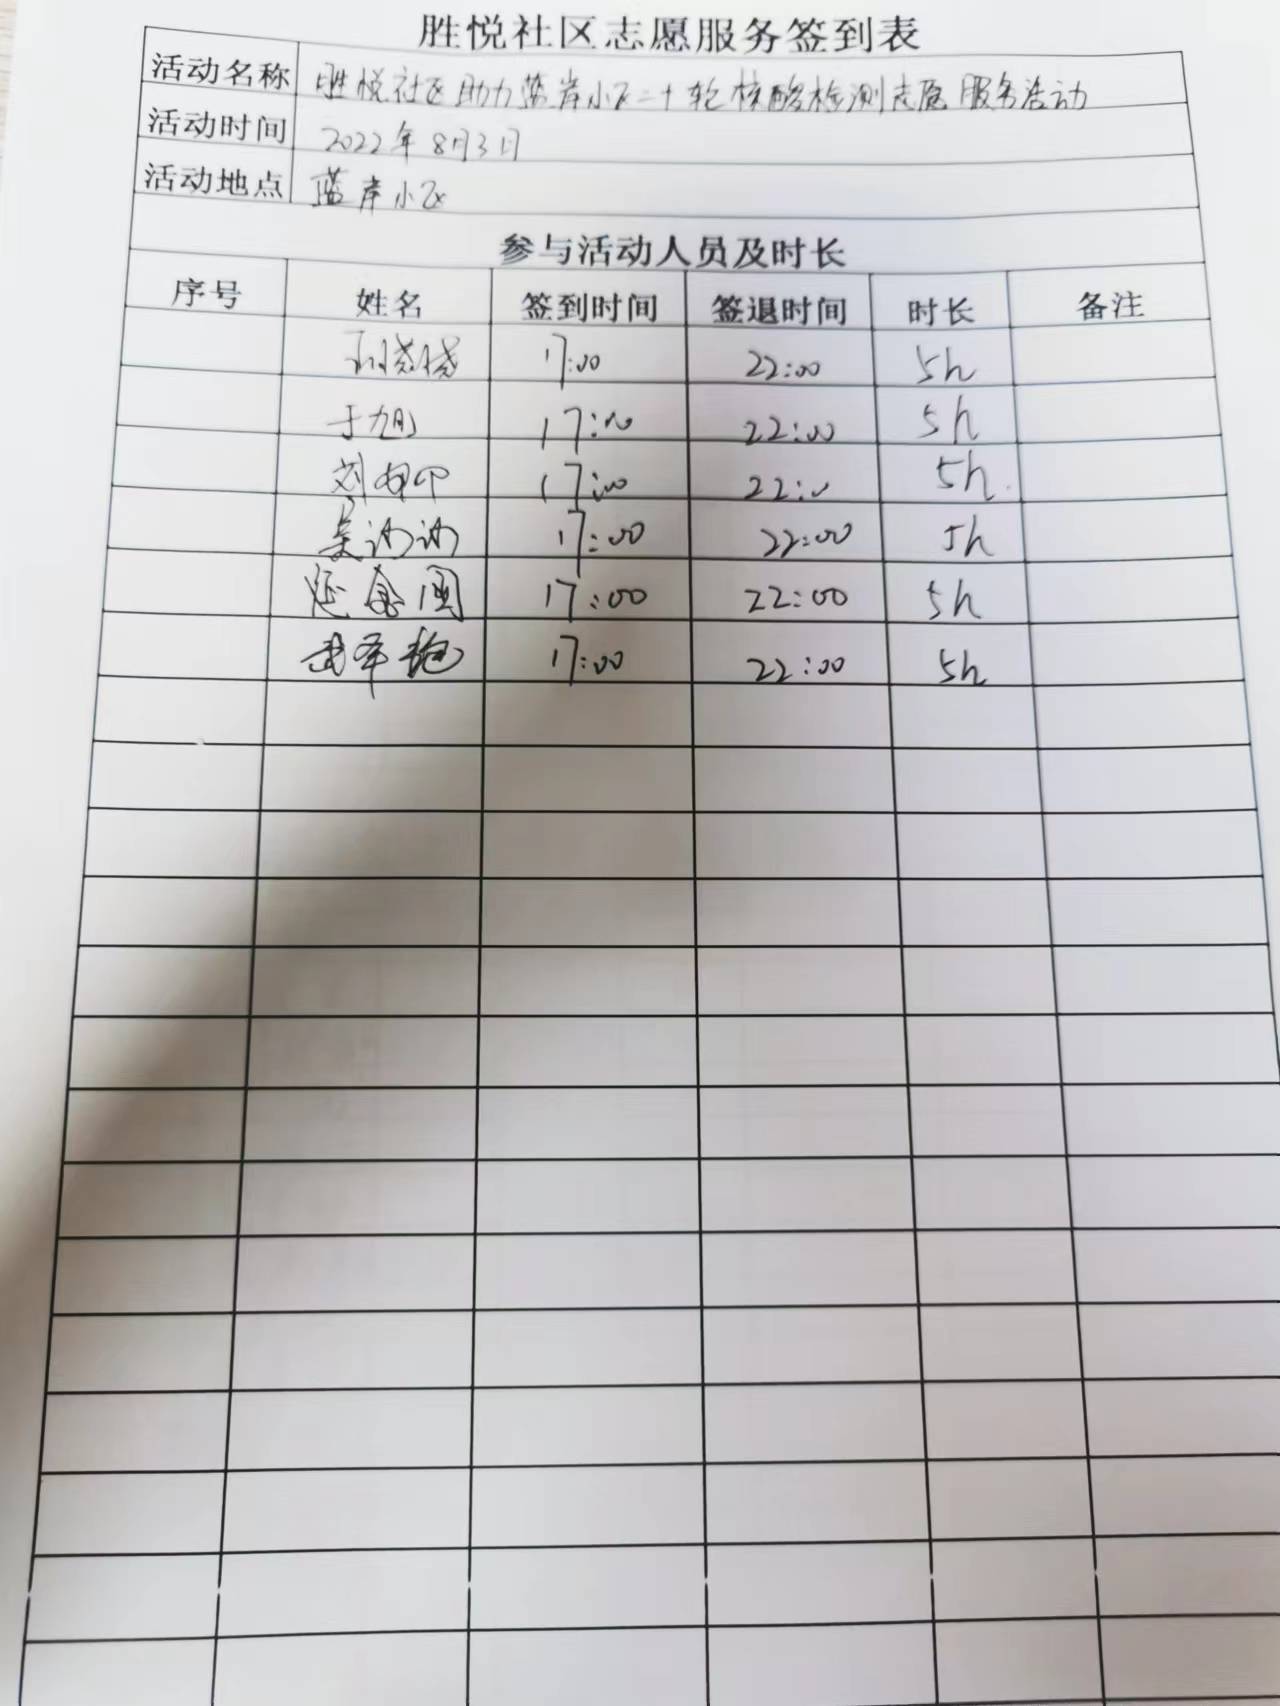 胜悦社区志愿服务签到表
活动名称 胜悦社区助力蓝岸小区二十轮核酸检测志愿服务活动
活动时间 2022年8月3日
活动地点 蓝岸小区
参与活动人员及时长
序号 姓名 签到时间 签退时间 时长 备注
17:00 22:00 5h
于旭 17:00 22:00 5h
17:00 22:00 5h
17:00 22:00 5h
17:00 22:00 5h
17:00 22:00 5h